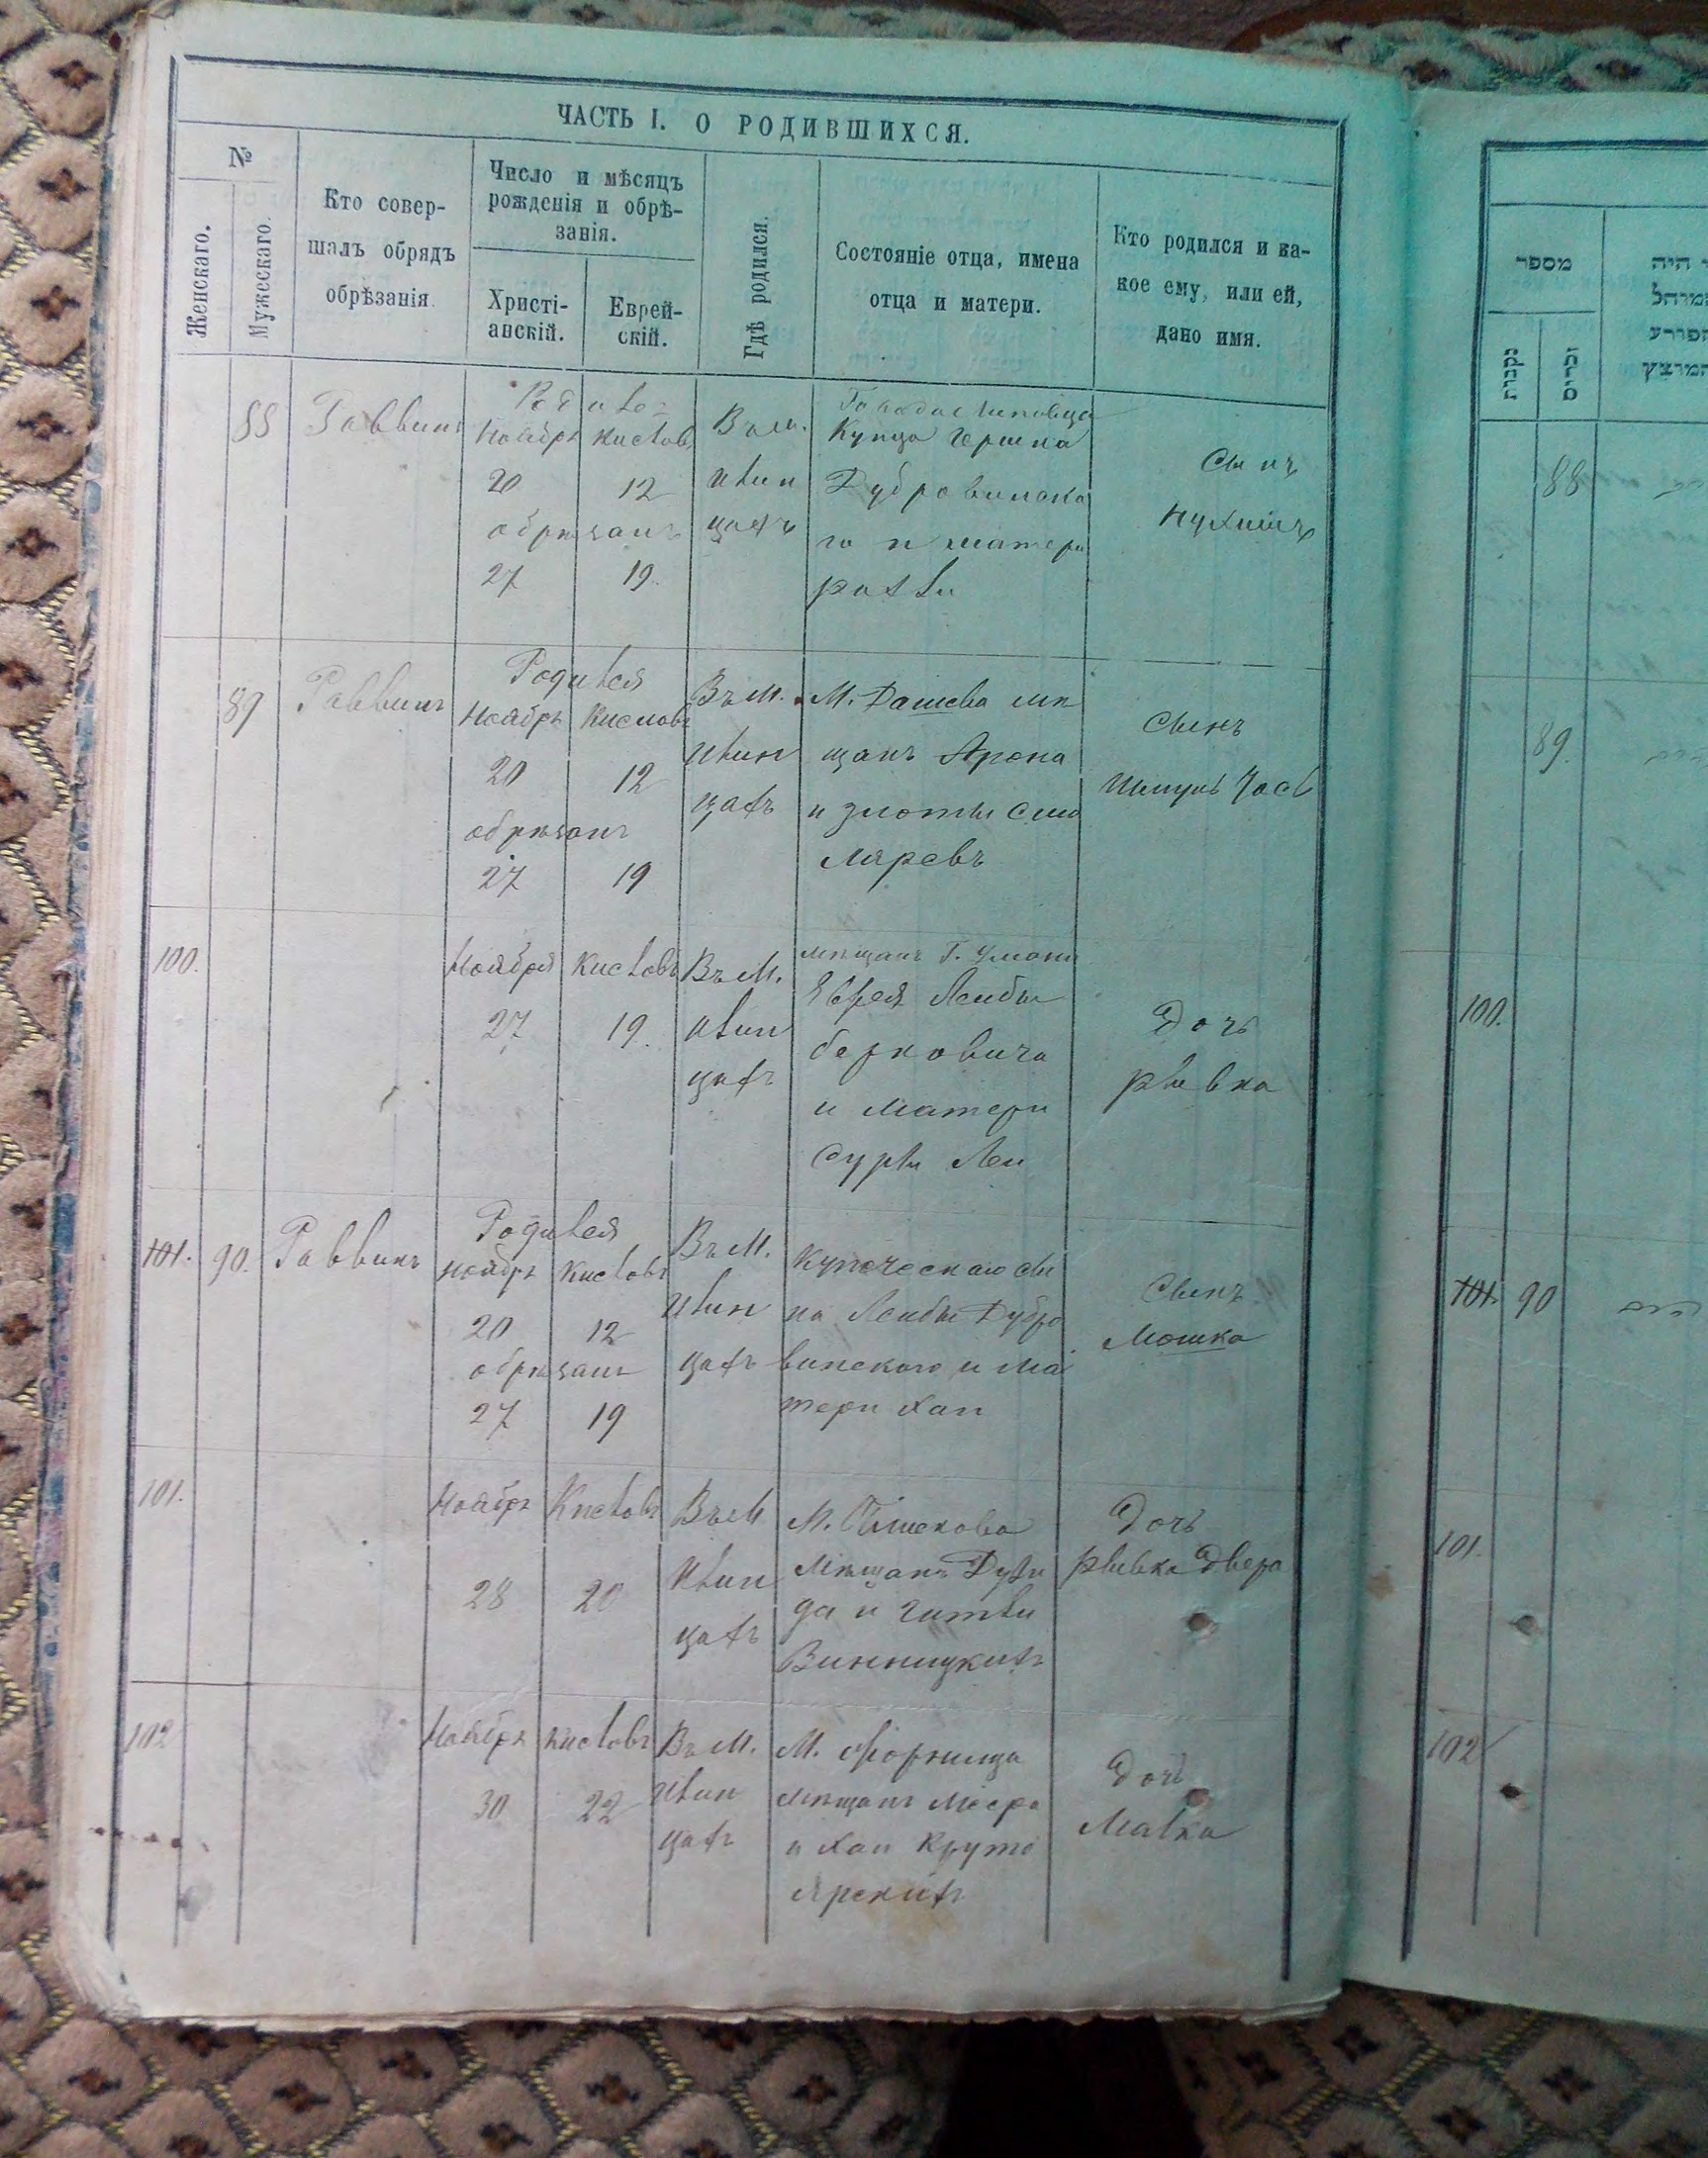 ЧАСТЬ I. О РОДИВШИХСЯ.
№
Женскаго.
Мужескаго.
Кто совер-
шалъ обрядъ
обрѣзанія
Число и мѣсяцъ
рожденія и обрѣ-
занія.
Христі-
анскій.
Еврей-
скій.
Гдѣ родился.
Состояніе отца, имена
отца и матери.
Кто родился и ка-
кое ему, или ей,
дано имя.
88
Раввинъ
Ноябрь
20
обрѣзанъ
27
12
19.
Въ м.
Илин
цахъ
Купца Гершка
Дубровинска
го и матери
Рахли
Сынъ
Нухимъ
89
Раввинъ
Родился
Ноябрь
20
обрѣзанъ
27
Кислевъ
12
19
Въ М.
Илин
цахъ
М. Дашева мѣ
щанъ Арона
и Злоты Смо
ляревъ
Сынъ
Шмуль Іось
100.
Ноября
27
Кислевъ
19.
Въ М.
Илин
цахъ
мѣщанъ Г. Умани
Еврея Лейбы
Берковича
и матери
Суры Леи
Дочь
Рывка
101. 90.
Раввинъ
Родился
Ноябрь
20
обрѣзанъ
27
Кислевъ
12
19
Въ М.
Илин
цахъ
Купеческаго сы
на Лейбы Дубро
винского и ма
тери Хаи
Сынъ
Мошко
101.
Ноябрь
28
Кислевъ
20
Въ М
Илин
цахъ
мѣщанъ
да и Гитли
Винницкихъ
Дочь
Рывка Двера
102
Ноябрь
30
Кислевъ
22
Въ М.
Илин
цахъ
М.
мѣщанъ Меера
и Хаи Круто
ярскихъ
Дочь
Малка
מספר
נקבות
זכרים
היה
המוהל
הפורע
המוצץ
88
89.
100.
101. 90
101.
102